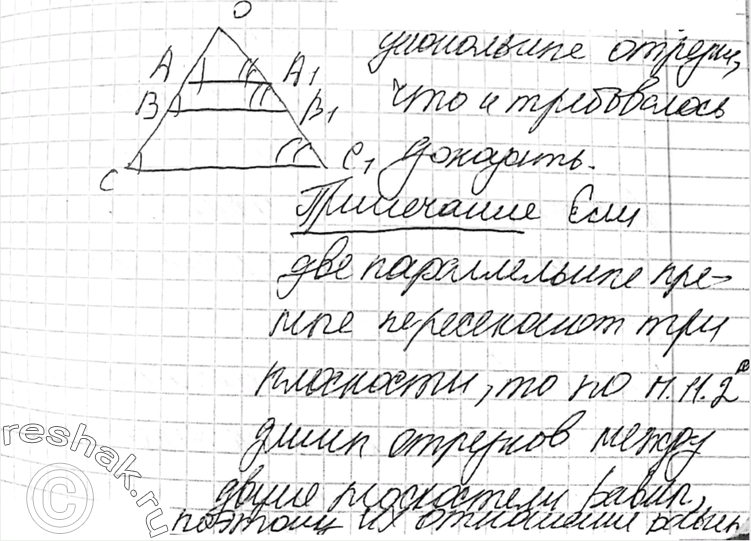 O
A A₁ циональные отрезки,
B B₁ что и требовалось
C C₁ доказать.
Примечание Если
две параллельные пря-
мые пересекают три
плоскости, то по п.п.2
длины отрезков между
двумя плоскостями равны,
поэтому их отношения равны
© reshak.ru